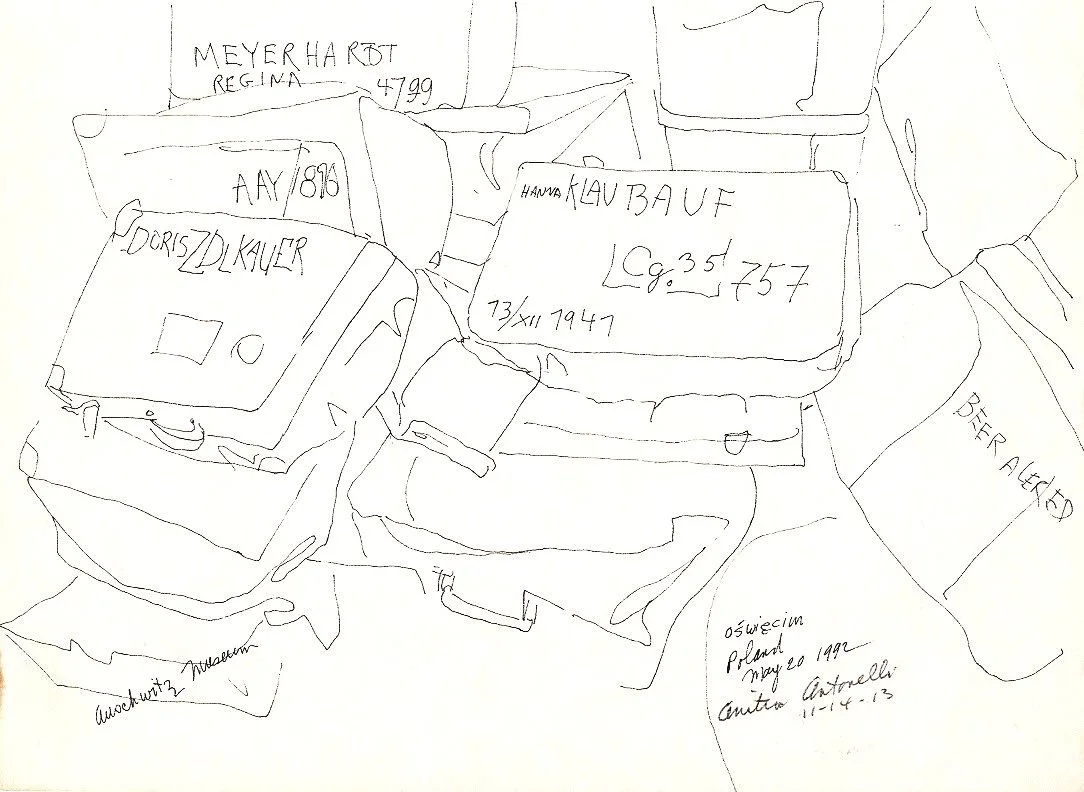 MEYERHARDT
REGINA 4799
AAY/896
DORIS ZDLKAUER
HANNA KLAUBAUF
Cg. 35 757
13/XII 1941
BEER ALERED
Auschwitz Museum
Oświęcim
Poland
May 20 1992
Anitra Antonelli
11-14-13